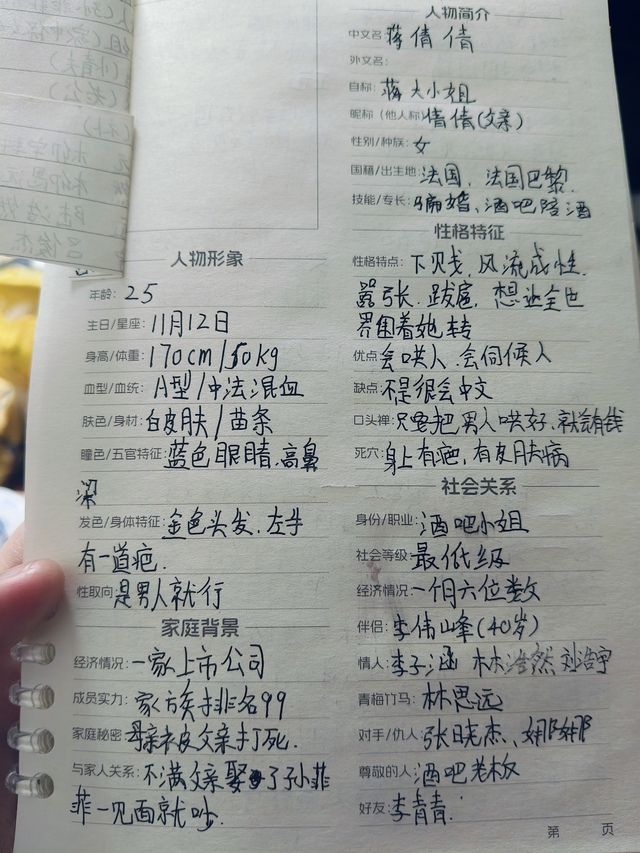 人物简介
中文名 蒋倩倩
外文名:
自标: 蒋大小姐
昵称（他人称）倩倩(父亲)
性别/种族: 女
国籍/出生地: 法国，法国巴黎.
技能/专长: 骗婚、酒吧陪酒
性格特征
性格特点: 下贱，风流成性.
嚣张.跋扈，想让全世
界围着她转
优点: 会哄人.会伺候人
缺点: 不是很会中文
口头禅: 只要把男人哄好.就会有钱
死穴: 身上有疤，有皮肤病
社会关系
身份/职业: 酒吧小姐
社会等级: 最低级
经济情况: 一个月六位数
伴侣: 李伟峰(40岁)
情人: 李子涵 林浩然 刘浩宇
青梅竹马: 林思远
对手/仇人: 张晓杰、娜娜
尊敬的人: 酒吧老板
好友: 李青青.
第 页
人物形象
年龄: 25
生日/星座: 11月12日
身高/体重: 170cm/50kg
血型/血统: A型/中法混血
肤色/身材: 白皮肤/苗条
瞳色/五官特征: 蓝色眼睛.高鼻
梁
发色/身体特征: 金色头发.左手
有一道疤.
性取向: 是男人就行
家庭背景
经济情况: 一家上市公司
成员实力: 家族排名99
家庭秘密: 母亲被父亲打死.
与家人关系: 不满父亲娶了孙菲
菲一见面就吵.